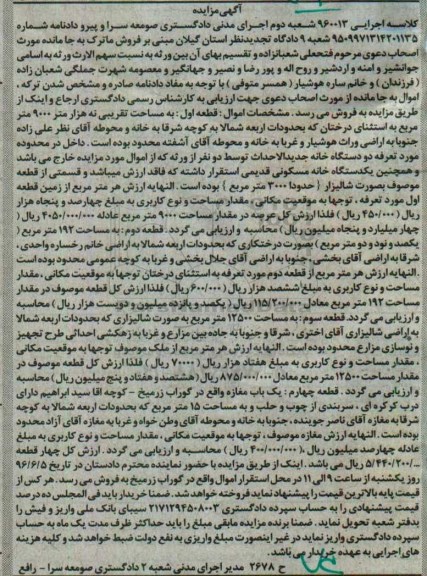 آگهی مزایده
کلاسه اجرایی ۹۶۰۰۱۳ شعبه دوم اجرای مدنی دادگستری صومعه سرا و پیرو دادنامه شماره
۹۵۰۹۹۷۱۳۱۴۲۰۱۱۳۵ شعبه ۹ دادگاه تجدیدنظر استان گیلان مبنی بر فروش ماترک به جا مانده مورث
اصحاب دعوی مرحوم فتحعلی شعبانزاده و تقسیم بهای آن بین ورثه به نسبت سهم الارث ورثه به اسامی
جوانشیر و امنه و اردشیر و روح اله و پور رضا و نصیر و جهانگیر و معصومه شهرت جملگی شعبان زاده
(فرزندان) و خانم ساره هوشیار (همسر متوفی) با توجه به مفاد دادنامه صادره و مشخص شدن ترکه،
اموال به جا مانده از مورث اصحاب دعوی جهت ارزیابی به کارشناس رسمی دادگستری ارجاع و اینک از
طریق مزایده به فروش می رسد. مشخصات اموال: قطعه اول: به مساحت تقریبی نه هزار متر ۹۰۰۰ متر
مربع به استثنای درختان که بحدودات اربعه شمالا به کوچه شرقا به خانه و محوطه آقای نظر علی زاده
جنوبا به اراضی وراث هوشیار و غربا به خانه و محوطه آقای آشفته محدود بوده است. داخل در محدوده
مورد تعرفه دو دستگاه خانه جدیدالاحداث توسط دو نفر از ورثه که از اموال مورد مزایده خارج می باشد
و همچنین یکدستگاه خانه مسکونی قدیمی استقرار داشته که فاقد ارزش میباشد و قسمتی از قطعه
موصوف بصورت شالیزار (حدودا ۳۰۰۰ متر مربع) بوده است. النهایه ارزش هر متر مربع از زمین قطعه
اول مورد تعرفه، توجها به موقعیت مکانی، مقدار مساحت و نوع کاربری به مبلغ چهارصد و پنجاه هزار
ریال (۴۵۰/۰۰۰ ریال) فلذا ارزش کل عرصه در مقدار مساحت ۹۰۰۰ متر مربع عادله ۴۰۵۰/۰۰۰/۰۰۰ ریال (
چهار میلیارد و پنجاه میلیون ریال) محاسبه و ارزیابی می گردد. قطعه دوم: به مساحت ۱۹۲ متر مربع (
یکصد و نود و دو متر مربع) بصورت درختکاری که بحدودات اربعه شمالا به اراضی خانم رخساره واحدی،
شرقا به اراضی آقای بخشی، جنوبا به اراضی آقای جلال بخشی و غربا به کوچه عمومی محدود بوده است
. النهایه ارزش هر متر مربع از قطعه دوم مورد تعرفه به استثنای درختان توجها به موقعیت مکانی، مقدار
مساحت و نوع کاربری به مبلغ ششصد هزار ریال (۶۰۰/۰۰۰ ریال) فلذا ارزش کل قطعه موصوف در مقدار
مساحت ۱۹۲ متر مربع معادل ۱۱۵/۲۰۰/۰۰۰ ریال (یکصد و پانزده میلیون و دویست هزار ریال) محاسبه
و ارزیابی می گردد. قطعه سوم: به مساحت ۱۲۵۰۰ متر مربع به صورت شالیزاری که بحدودات اربعه شمالا
به اراضی شالیزاری آقای اختری، شرقا و جنوبا به جاده بین مزارع و غربا به زهکشی احداثی طرح تجهیز
و نوسازی مزارع محدود بوده است. النهایه ارزش هر متر مربع از ملک موصوف توجها به موقعیت مکانی
، مقدار مساحت و نوع کاربری به مبلغ هفتاد هزار ریال (۷۰۰۰۰ ریال) فلذا ارزش کل قطعه موصوف در
مقدار مساحت ۱۲۵۰۰ متر مربع معادل ۸۷۵/۰۰۰/۰۰۰ ریال (هشتصد و هفتاد و پنج میلیون ریال) محاسبه
و ارزیابی می گردد. قطعه چهارم: یک باب مغازه واقع در گوراب زرمیخ - کوچه آقا سید ابراهیم دارای
درب کرکره ای، سربندی از چوب و حلب و به مساحت ۱۵ متر مربع که بحدودات اربعه شمالا به کوچه
شرقا به مغازه آقای ناصر جوینده، جنوبا به خانه و محوطه آقای وطن خواه و غربا به مغازه آقای آزاد محدود
بوده است. النهایه ارزش مغازه موصوف، توجها به موقعیت مکانی، مقدار مساحت و نوع کاربری به مبلغ
عادله چهارصد میلیون ریال (۴۰۰/۰۰۰/۰۰۰ ریال) محاسبه و ارزیابی می گردد. ارزش کل چهار قطعه
۵/۴۴۰/۲۰۰/۰۰۰ ریال می باشد. اینک از طریق مزایده با حضور نماینده محترم دادستان در تاریخ ۹۶/۶/۵
روز یکشنبه از ساعت ۹ الی ۱۱ در محل استقرار اموال واقع در گوراب زرمیخ به فروش می رسد. هر کس از
قیمت پایه بالاترین قیمت را پیشنهاد نماید فروخته خواهد شد. ضمنا خریدار باید فی المجلس ده درصد
قیمت پیشنهادی را به حساب سپرده دادگستری ۲۱۷۱۲۹۴۵۰۸۰۰۳ سیبای بانک ملی واریز و فیش را
بدفتر شعبه تحویل نماید. ضمنا برنده مزایده مابقی مبلغ را باید حداکثر ظرف مدت یک ماه به حساب
سپرده دادگستری واریز نماید در غیر اینصورت مبلغ واریزی به نفع دولت ضبط خواهد شد و کلیه هزینه
های اجرایی به عهده خریدار می باشد.
ح ۲۶۷۸ مدیر اجرای مدنی شعبه ۲ دادگستری صومعه سرا - رافع